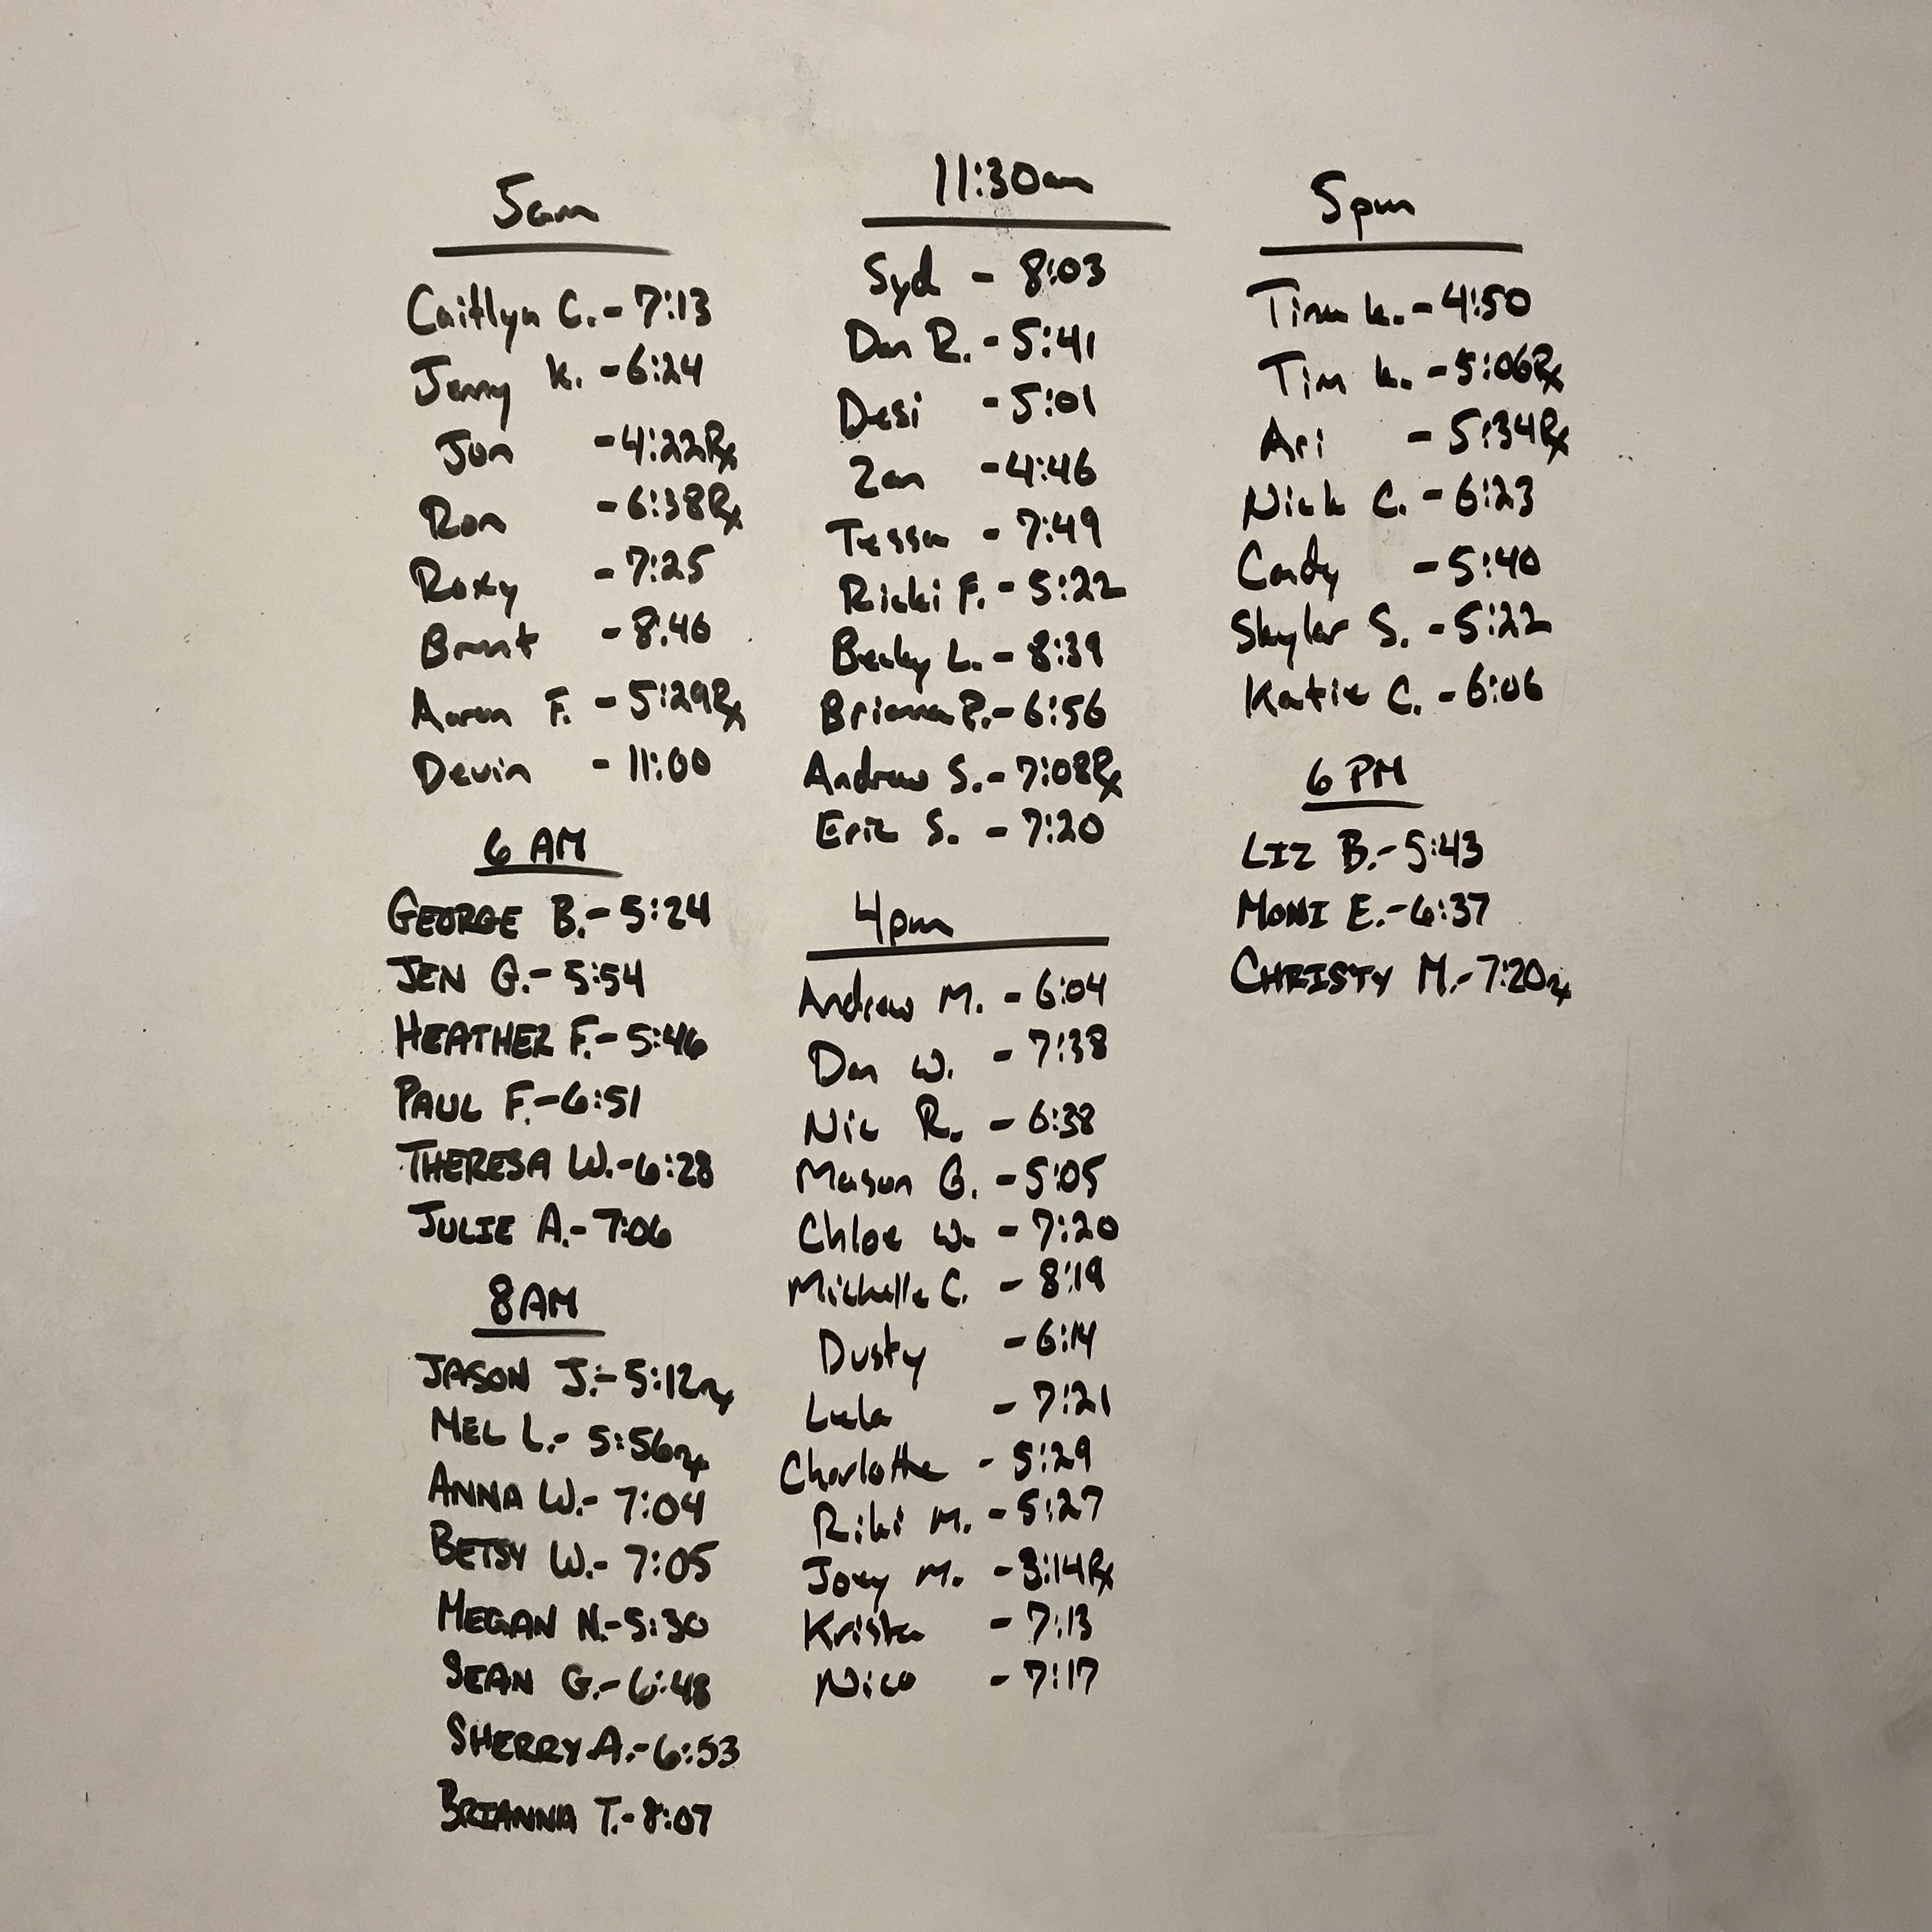 5am
Caitlyn C. - 7:13
Jerry K. - 6:24
Jon - 4:22Rx
Ron - 6:38Rx
Roxy - 7:25
Brent - 8:46
Aaron F. - 5:29Rx
Devin - 11:00
6 AM
GEORGE B. - 5:24
JEN G. - 5:54
HEATHER F. - 5:46
PAUL F. - 6:51
THERESA W. - 6:28
JULIE A. - 7:06
8 AM
JASON J. - 5:12rx
MEL L. - 5:56rx
ANNA W. - 7:04
BETSY W. - 7:05
MEGAN N. - 5:30
SEAN G. - 6:48
SHERRY A. - 6:53
BRIANNA T. - 8:07
11:30am
Syd - 8:03
Dan R. - 5:41
Desi - 5:01
Zan - 4:46
Tessa - 7:49
Ricki F. - 5:22
Becky L. - 8:39
Briana P. - 6:56
Andrew S. - 7:08Rx
Eric S. - 7:20
4pm
Andrew M. - 6:04
Dan W. - 7:38
Nic R. - 6:38
Mason G. - 5:05
Chloe W. - 7:20
Michelle C. - 8:19
Dusty - 6:14
Lula - 7:21
Charlotte - 5:29
Riki M. - 5:27
Joey M. - 3:14Rx
Krista - 7:13
Nico - 7:17
5pm
K. - 4:50
Tim K. - 5:06Rx
Ari - 5:34Rx
Nick C. - 6:23
- 5:40
Skylar S. - 5:22
Katie C. - 6:06
6 PM
LIZ B. - 5:43
MONI E. - 6:37
CHRISTY M. - 7:20rx